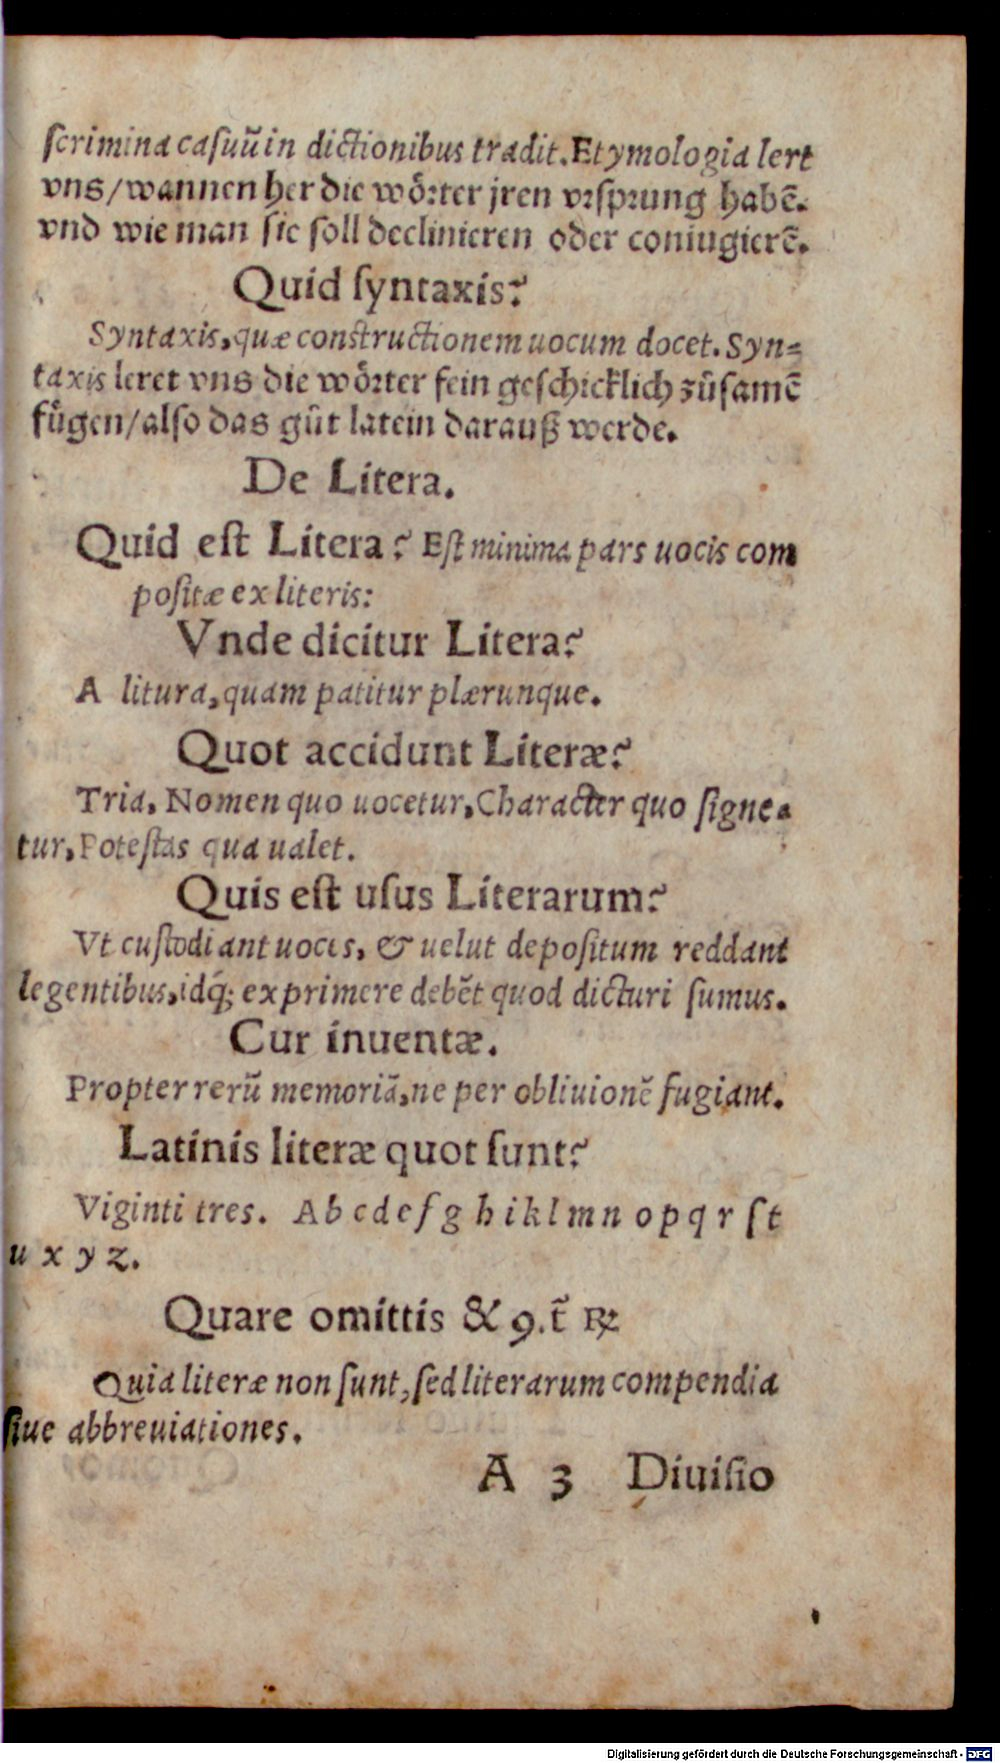 ſcrimina caſuũ in dictionibus tradit. Etymologia lert
vns/wannen her die woͤrter jren vrſprung habẽ.
vnd wie man ſie ſoll declinieren oder coniugierẽ.
Quid ſyntaxis?
Syntaxis, quæ constructionem uocum docet. Syn⸗
taxis leret vns die woͤrter fein geſchicklich zuͦſamẽ
fuͤgen/alſo das guͦt latein darauß werde.
De Litera.
Quid eſt Litera? Eſt minima pars uocis com
poſitæ ex literis:
Vnde dicitur Litera?
A litura, quam patitur plærunque.
Quot accidunt Literæ?
Tria, Nomen quo uocetur, Character quo ſigne⸗
tur, Poteſtas qua ualet.
Quis eſt uſus Literarum?
Vt cuſtodiant uoces, & uelut depoſitum reddant
legentibus, idq́; exprimere debẽt quod dicturi ſumus.
Cur inuentæ.
Propter rerũ memoriã, ne per obliuionẽ fugiant.
Latinis literæ quot ſunt?
Viginti tres. A b c d e f g h i k l m n o p q r ſ t
u x y z.
Quare omittis & 9. t̃ ꝶ
Quia literæ non ſunt, ſed literarum compendia
ſiue abbreuiationes.
A 3 Diuiſio
Digitalisierung gefördert durch die Deutsche Forschungsgemeinschaft - DFG